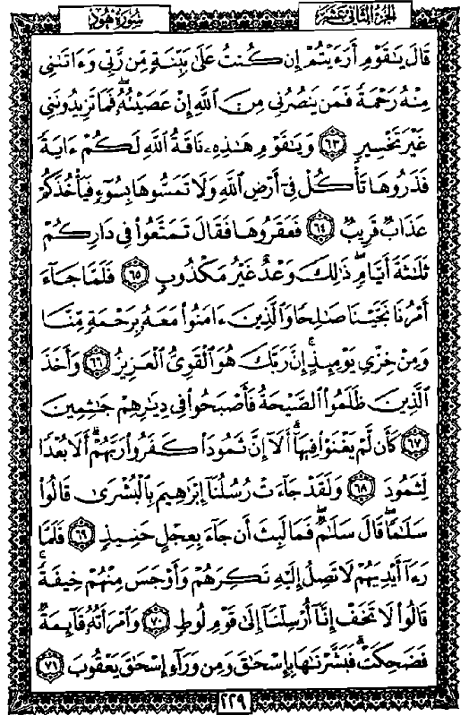 الجزء الثاني عشر
سورة هود
قَالَ يَٰقَوْمِ أَرَءَيْتُمْ إِن كُنتُ عَلَىٰ بَيِّنَةٍ مِّن رَّبِّى وَءَاتَىٰنِى
مِنْهُ رَحْمَةً فَمَن يَنصُرُنِى مِنَ ٱللَّهِ إِنْ عَصَيْتُهُۥ فَمَا تَزِيدُونَنِى
غَيْرَ تَخْسِيرٍ ٦٣ وَيَٰقَوْمِ هَٰذِهِۦ نَاقَةُ ٱللَّهِ لَكُمْ ءَايَةً
فَذَرُوهَا تَأْكُلْ فِىٓ أَرْضِ ٱللَّهِ وَلَا تَمَسُّوهَا بِسُوٓءٍ فَيَأْخُذَكُمْ
عَذَابٌ قَرِيبٌ ٦٤ فَعَقَرُوهَا فَقَالَ تَمَتَّعُوا۟ فِى دَارِكُمْ
ثَلَٰثَةَ أَيَّامٍ ۖ ذَٰلِكَ وَعْدٌ غَيْرُ مَكْذُوبٍ ٦٥ فَلَمَّا جَآءَ
أَمْرُنَا نَجَّيْنَا صَٰلِحًا وَٱلَّذِينَ ءَامَنُوا۟ مَعَهُۥ بِرَحْمَةٍ مِّنَّا
وَمِنْ خِزْىِ يَوْمِئِذٍ ۗ إِنَّ رَبَّكَ هُوَ ٱلْقَوِىُّ ٱلْعَزِيزُ ٦٦ وَأَخَذَ
ٱلَّذِينَ ظَلَمُوا۟ ٱلصَّيْحَةُ فَأَصْبَحُوا۟ فِى دِيَٰرِهِمْ جَٰثِمِينَ
٦٧ كَأَن لَّمْ يَغْنَوْا۟ فِيهَآ ۗ أَلَآ إِنَّ ثَمُودَا۟ كَفَرُوا۟ رَبَّهُمْ ۗ أَلَا بُعْدًا
لِّثَمُودَ ٦٨ وَلَقَدْ جَآءَتْ رُسُلُنَآ إِبْرَٰهِيمَ بِٱلْبُشْرَىٰ قَالُوا۟
سَلَٰمًا ۖ قَالَ سَلَٰمٌ ۖ فَمَا لَبِثَ أَن جَآءَ بِعِجْلٍ حَنِيذٍ ٦٩ فَلَمَّا
رَءَآ أَيْدِيَهُمْ لَا تَصِلُ إِلَيْهِ نَكِرَهُمْ وَأَوْجَسَ مِنْهُمْ خِيفَةً ۚ
قَالُوا۟ لَا تَخَفْ إِنَّآ أُرْسِلْنَآ إِلَىٰ قَوْمِ لُوطٍ ٧٠ وَٱمْرَأَتُهُۥ قَآئِمَةٌ
فَضَحِكَتْ فَبَشَّرْنَٰهَا بِإِسْحَٰقَ وَمِن وَرَآءِ إِسْحَٰقَ يَعْقُوبَ ٧١
٢٢٩